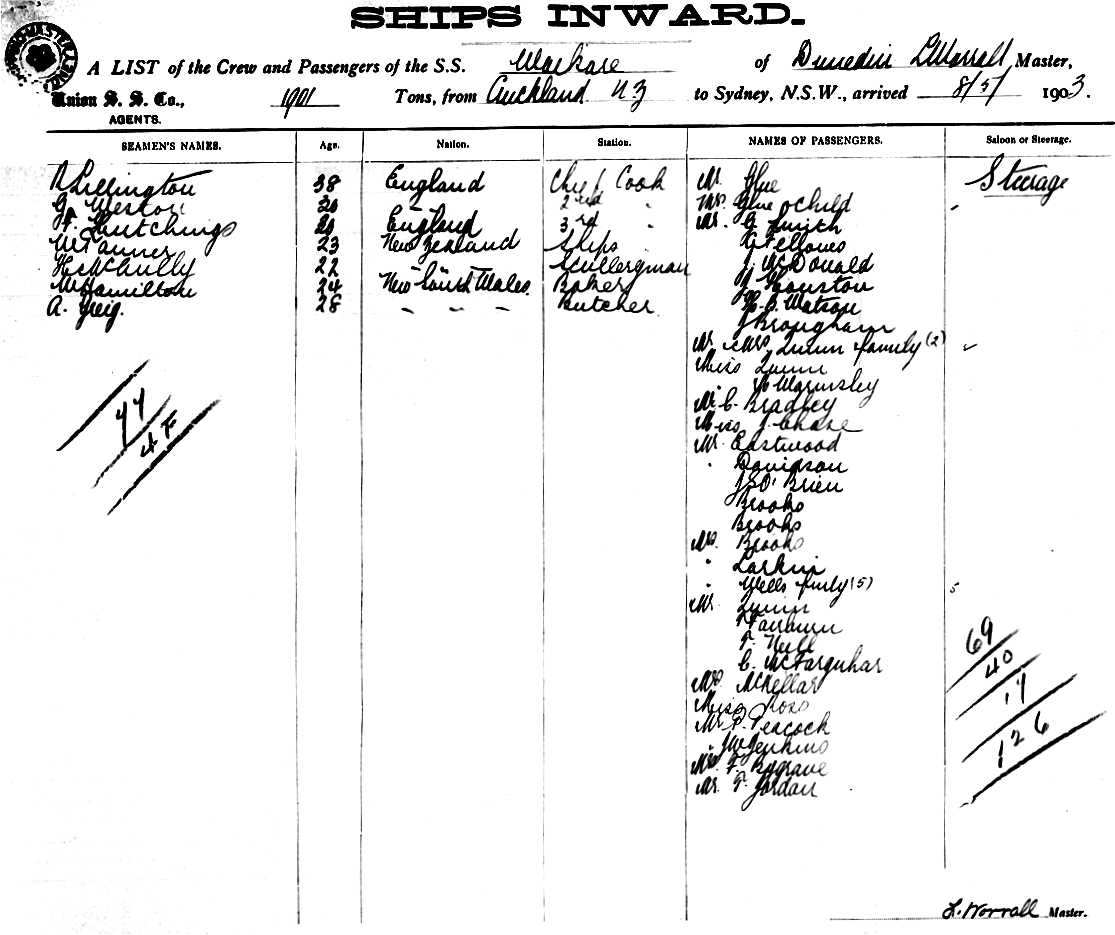 SHIPS INWARD.
A LIST of the Crew and Passengers of the S.S. of Dunedin L Worrall Master,
Union S. S. Co., 1901 Tons, from Auckland NZ to Sydney, N.S.W., arrived 8/5/ 1903.
AGENTS.
SEAMEN'S NAMES. Age. Nation. Station. NAMES OF PASSENGERS. Saloon or Steerage.
Lillington 38 England Chief Cook Mr. Steerage
G Weston 20 " 2nd " Mrs. & child
Hutchings 20 England 3rd " Mr. G
Tanner 23 New Zealand Ships " Fellowes
McAnlly 22 " Sculleryman J McDonald
W Hamilton 24 New South Wales. Baker Houston
A. Greig. 28 " " " Butcher Watson
J Brougham
Mr & Mrs Quinn family (2)
Miss Quinn
" Warmsley
Mr C. Bradley
Miss J. Chase
Mr. Eastwood
" Davidson
J S O'Brien
Brooks
Brooks
Mrs. Brooks
" Larkin
" Wells family (5) 5
Mr. Quinn
44
4 F
69
40
17
126
F. Neill
C. McFarquhar
Mrs. McKellar
Miss Ross
Mr P. Peacock
" JW Jenkins
Mrs F.
Mr. F. Jordan
L. Worrall Master.